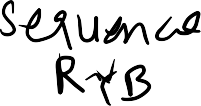 Sequence
R & B